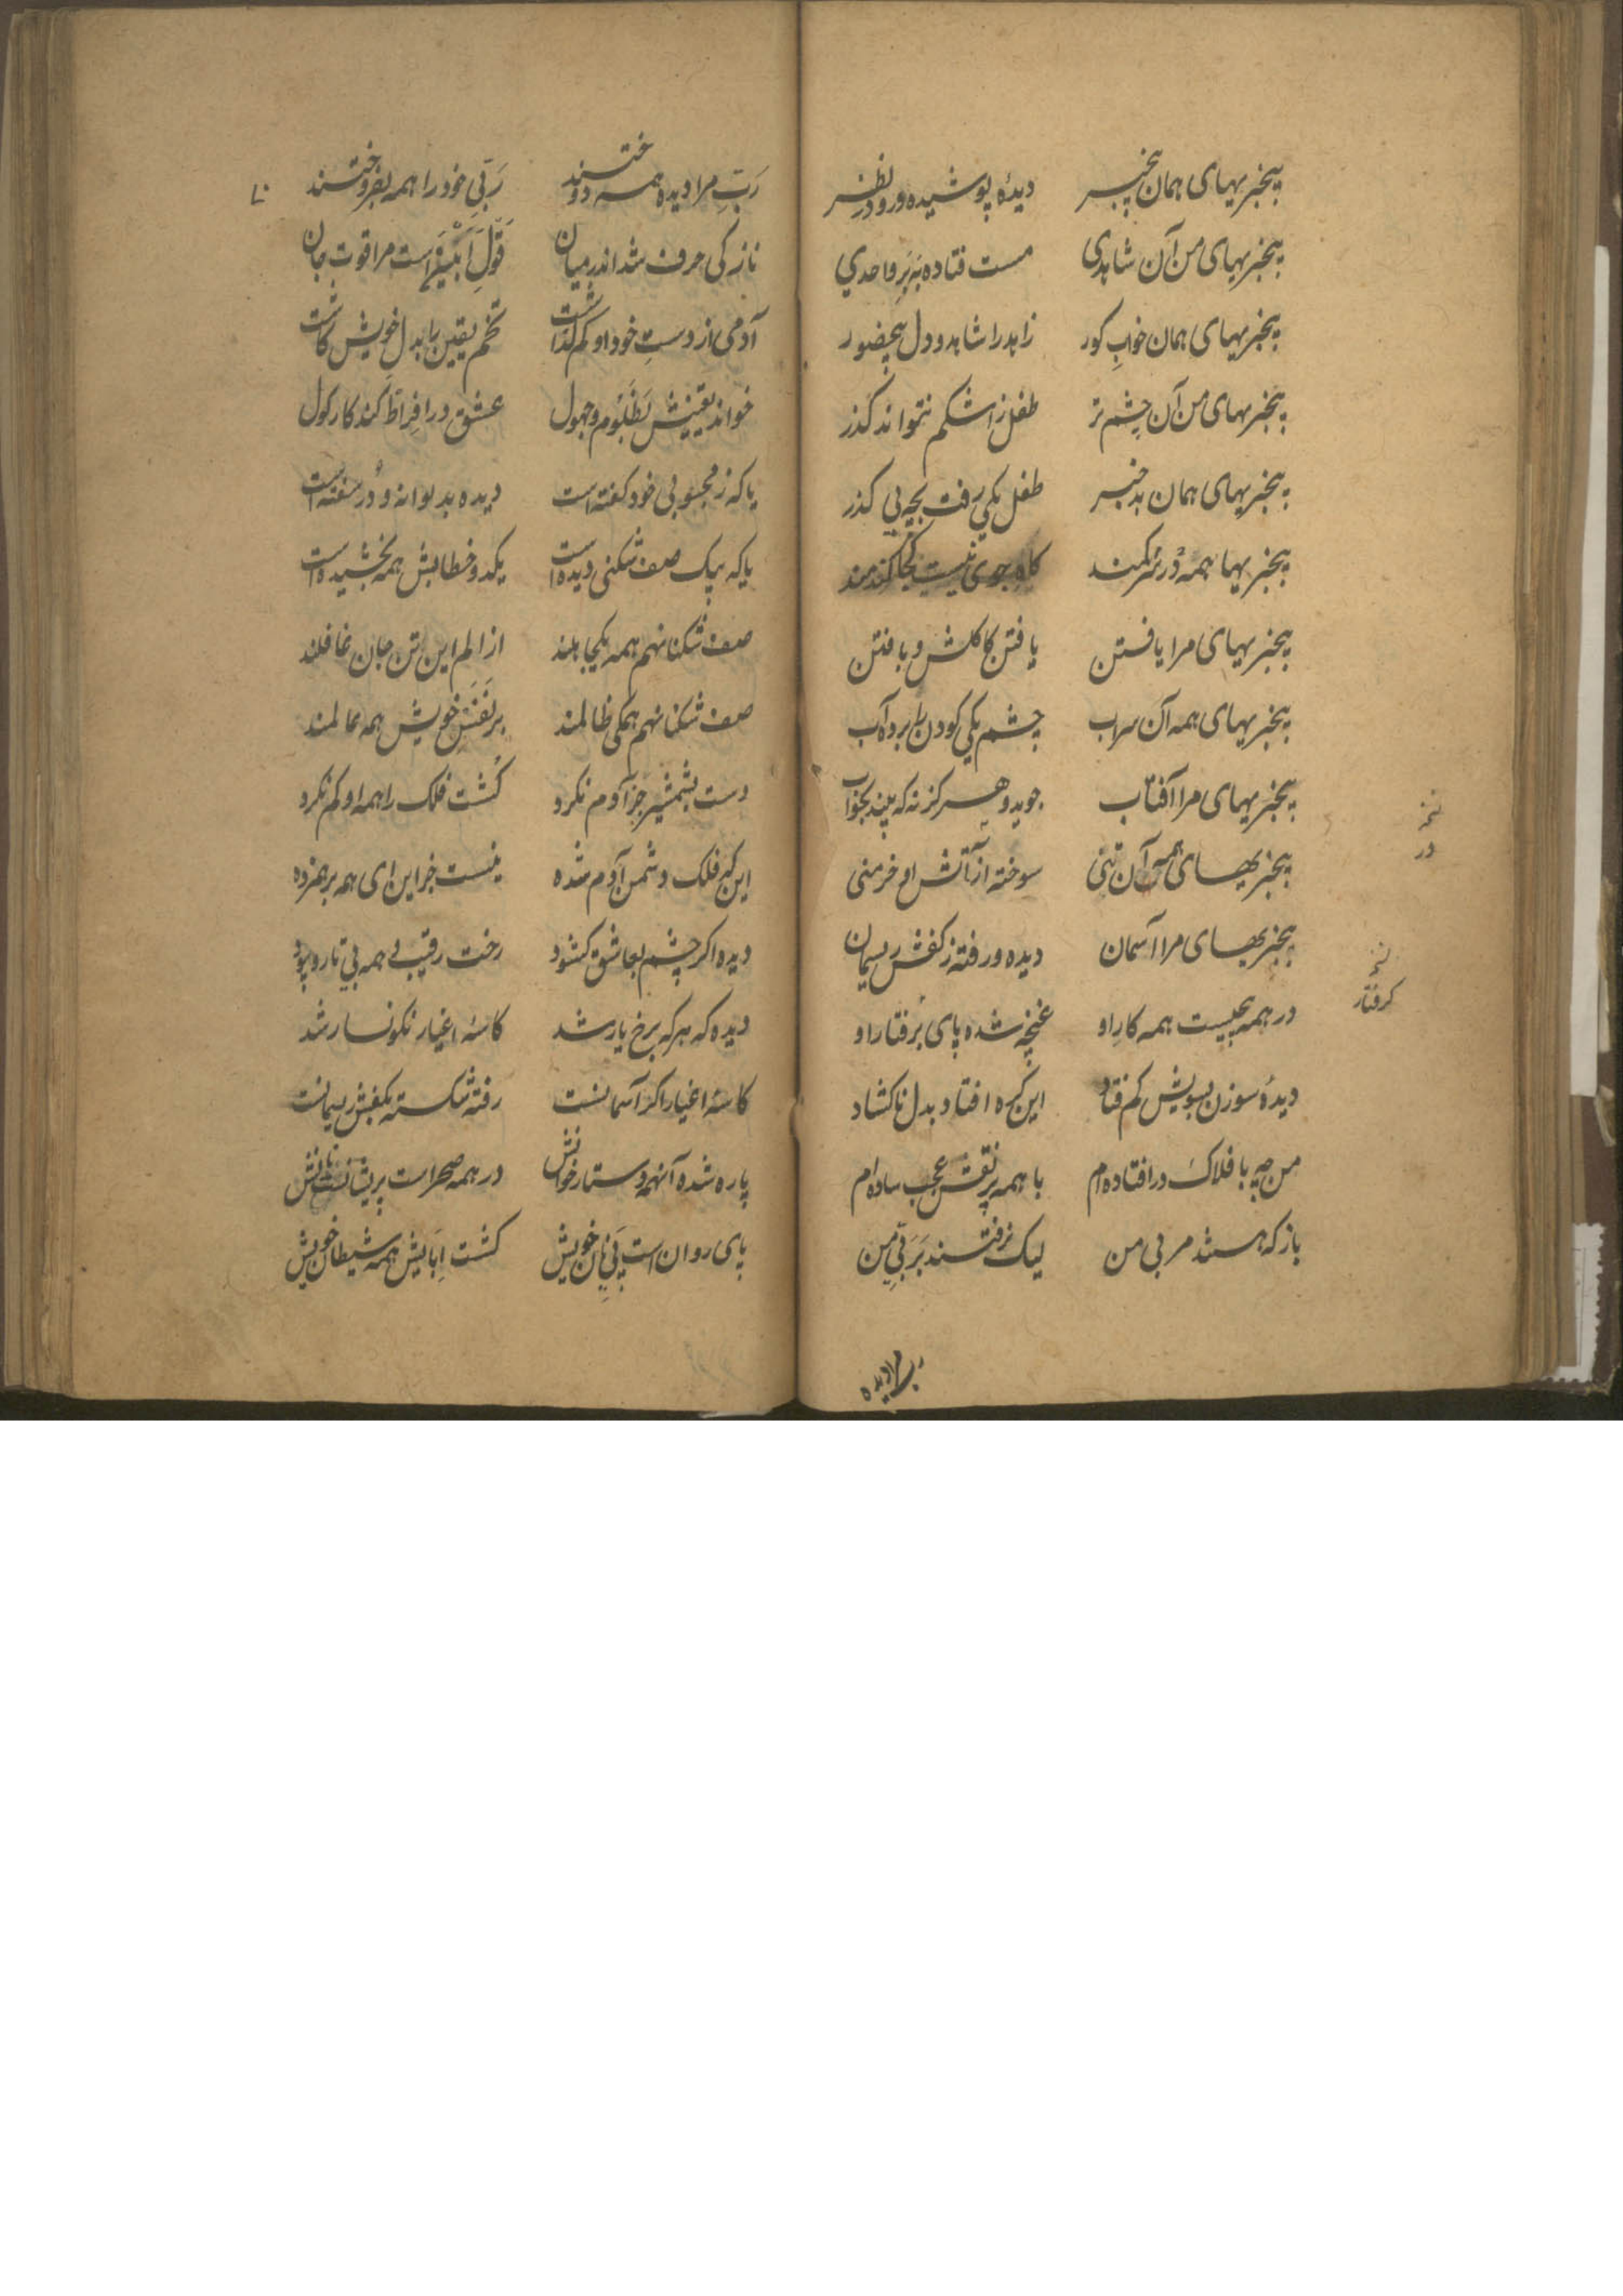 بیخبریهای همان بیخبر دیدۀ پوشیده ورو در نظر
بیخبریهای من آن شاهدی مست فتاده به بر واحدی
بیخبریهای همان خواب کور زاهد را شاهد و دل بیحضور
بیخبریهای من آن چشم تر طفل ز اشکم نتواند گذر
بیخبریهای همان بد خبر طفل یکی رفت بچه بی گذر
بیخبریها همه در کمند کاه جوی نیست کجا کندمند
بیخبریهای مرا یافتن یافتن کاکلش و بافتن
بیخبریهای همه آن سراب چشم یکی کودن را برد آب
بیخبریهای مرا آفتاب جوید و هرگز نه که بیند بخواب
بیخبریهای همه آن تنی سوخته از آتش او خرمنی
نسخه
در
بیخبریهای مرا آسمان دیده و رفته ز کفش ریسمان
نسخه
گرفتار
در همه پیست همه کار او غنچه شده پای برفتار او
دیدۀ سوزن بسویش کم فتاد این گره افتاد بدل ناکشاد
من چه با فلاک در افتاده ام با همه پر نقش عجب ساده ام
باز که هستند مربی من لیک نرفتند بربی من
رب مرا دیده
رب مرا دیده همه دوختند ربی خود را همه بفروختند
نازکی حرف شد اندر میان قول است مرا قوت جان
آدمی از دست خود او کم گذاشت تخم یقین را بدل خویش کاشت
خواند یقینش بظلوم و جهول عشق در افراط کند کار کول
یا که ز محبوبی خود گفته است دیده بدیوانه و در سفته است
یا که بیک صف شکنی دیده است یکدو خطایش همه بخشیده است
صف شکنانهم همه یکجا هلند از الم این تن جان غافلند
صف شکنانهم همگی ظالمند بر نفس خویش همه عالمند
دست بشمشیر جز آدم نکرد کشت فلک را همه او کم نکرد
این که فلک دشمن آدم شده نیست جز این رای همه برهمزده
دیده اگر چشم بعاشق کشود رخت رقیب همه بی تار و پود
دیده که هرکه برخ یار شد کاسۀ اغیار نکونسار شد
کاسۀ اغیار اگر آسمانست رفته شکسته بکفش ریسمانست
پاره شده آنهمه دستار خوانش در همه صحراست پریشان نشانش
پای روان است پی نان خویش کشت ابایش همه شیطان خویش